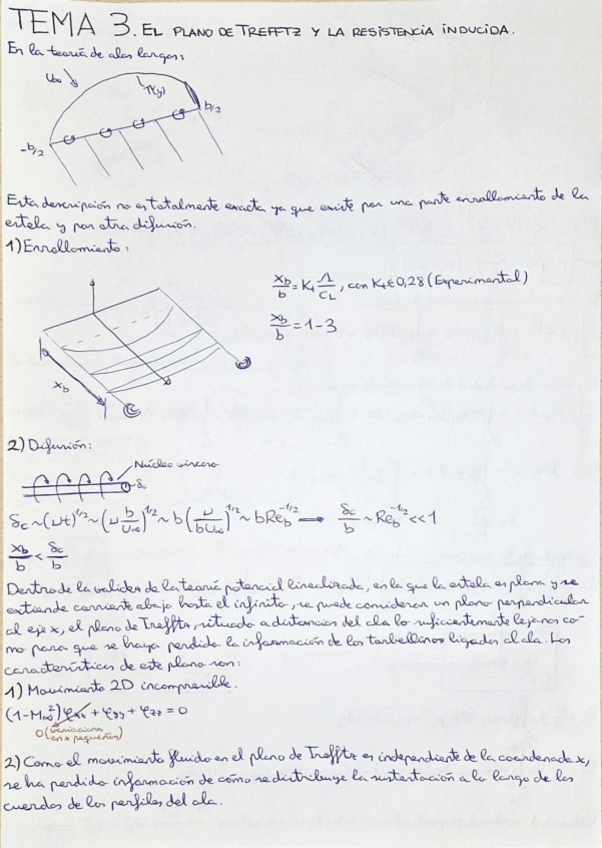 TEMA 3. EL PLANO DE TREFFTZ Y LA RESISTENCIA INDUCIDA.
En la teoría de alas largas:
U∞
Γ(y)
b/2
-b/2
Esta descripción no es totalmente exacta ya que existe por una parte enrollamiento de la
estela y por otra difusión.
1) Enrollamiento:
x_b/b = K₁ Λ/C_L, con K₁ ∈ 0,28 (Experimental)
x_b/b = 1-3
x_b
2) Difusión:
Núcleo viscoso
δc
δc ~ (νt)^1/2 ~ (ν b/U∞)^1/2 ~ b (ν/bU∞)^1/2 ~ b Re_b^-1/2 → δc/b ~ Re_b^-1/2 << 1
x_b/b < δc/b
Dentro de la validez de la teoría potencial linealizada, en la que la estela es plana y se
extiende corriente abajo hasta el infinito, se puede considerar un plano perpendicular
al eje x, el plano de Trefftz, situado a distancias del ala lo suficientemente lejanas co-
mo para que se haya perdido la información de los torbellinos ligados al ala. Las
características de este plano son:
1) Movimiento 2D incompresible.
(1-M∞²) φxx + φyy + φzz = 0
0 (variaciones
en x pequeñas)
2) Como el movimiento fluido en el plano de Trefftz es independiente de la coordenada x,
se ha perdido información de cómo se distribuye la sustentación a lo largo de las
cuerdas de los perfiles del ala.